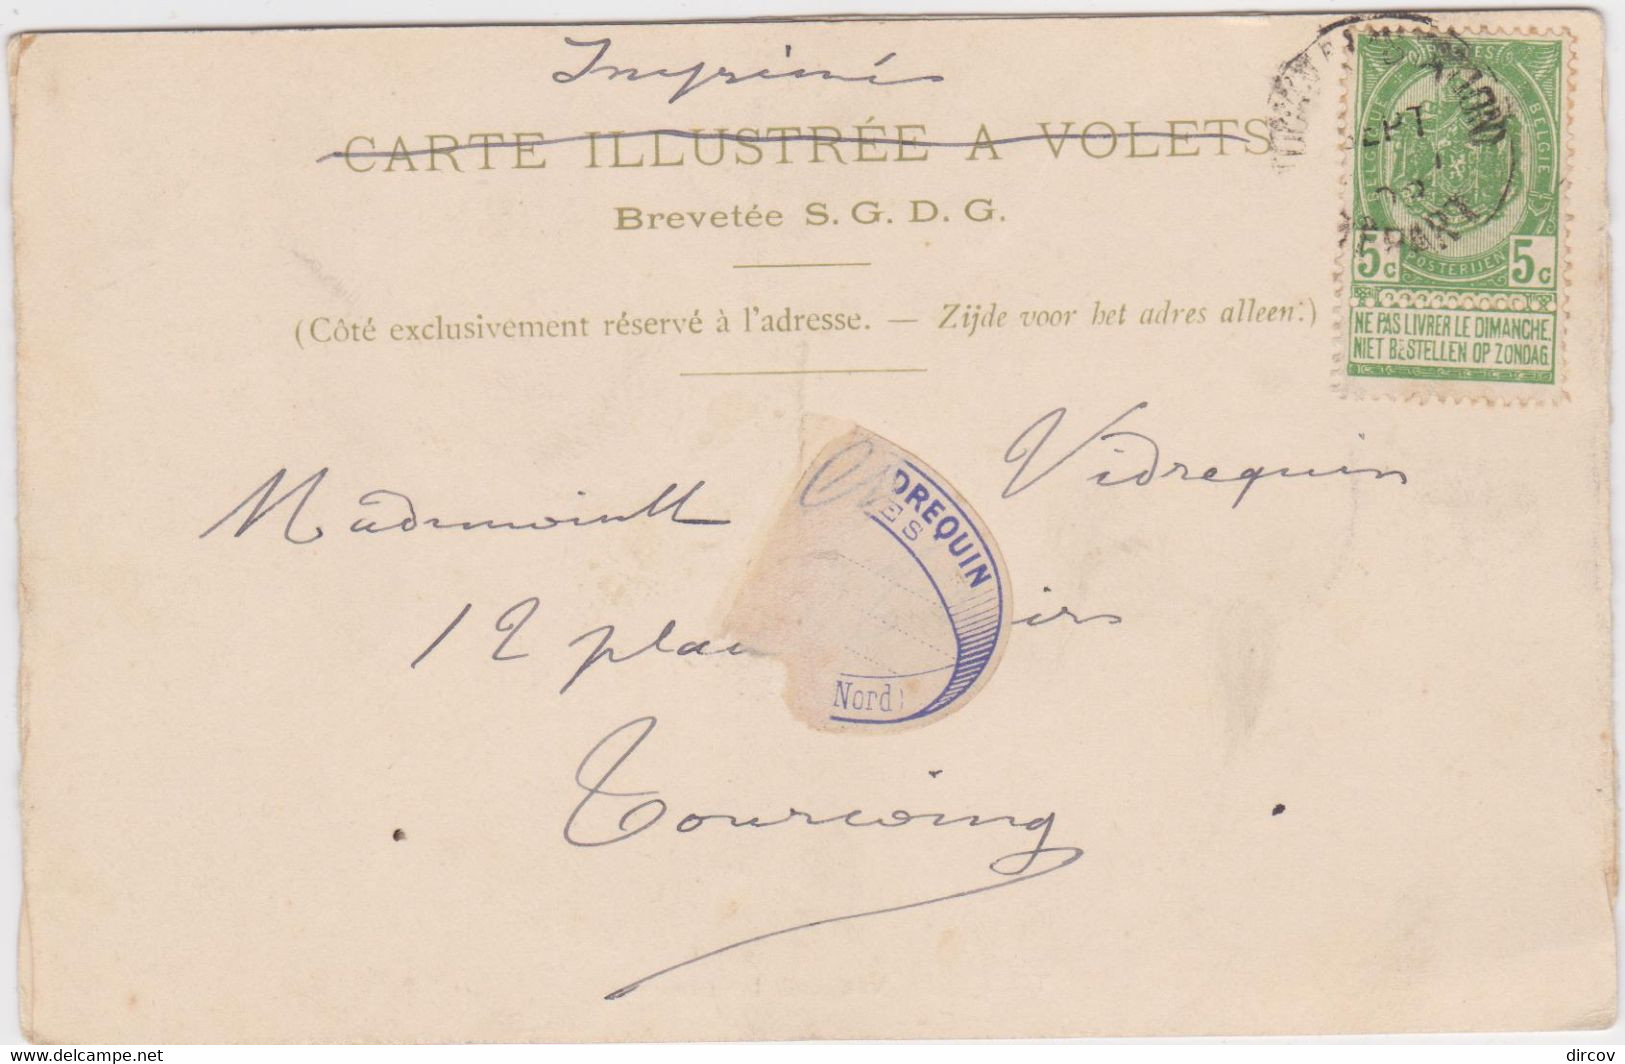 Imprimés
CARTE ILLUSTRÉE A VOLETS
Brevetée S. G. D. G.
(Côté exclusivement réservé à l'adresse. — Zijde voor het adres alleen.)
BELGIE
SEPT
1
DEPART
5c POSTERIJEN 5c
NE PAS LIVRER LE DIMANCHE.
NIET BESTELLEN OP ZONDAG.
Mademoiselle Vidrequin
DREQUIN
ES
12 pla irs
Nord)
Tourcoing
delcampe.net
dircov